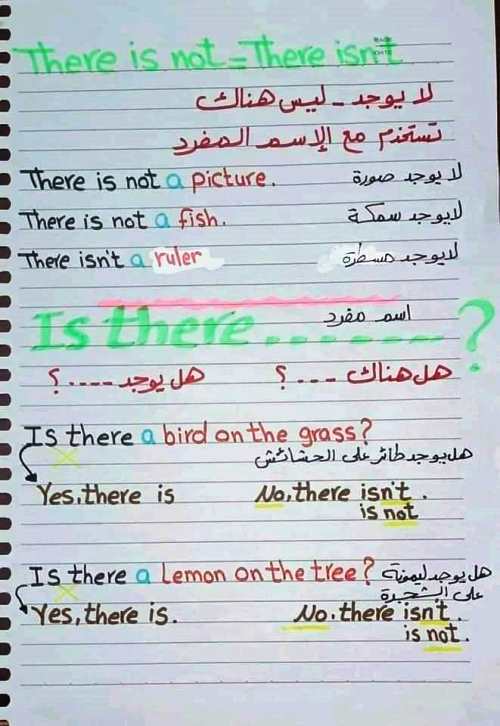 There is not = There isn't
لا يوجد - ليس هناك
تستخدم مع الإسم المفرد
There is not a picture. لا يوجد صورة
There is not a fish. لايوجد سمكة
There isn't a ruler لايوجد مسطرة
اسم مفرد
Is there ........?
هل هناك ....؟ هل يوجد ....؟
Is there a bird on the grass?
هل يوجد طائر على الحشائش
Yes, there is No, there isn't.
is not
Is there a Lemon on the tree? هل يوجد ليمونة
على الشجرة
Yes, there is. No, there isn't.
is not.